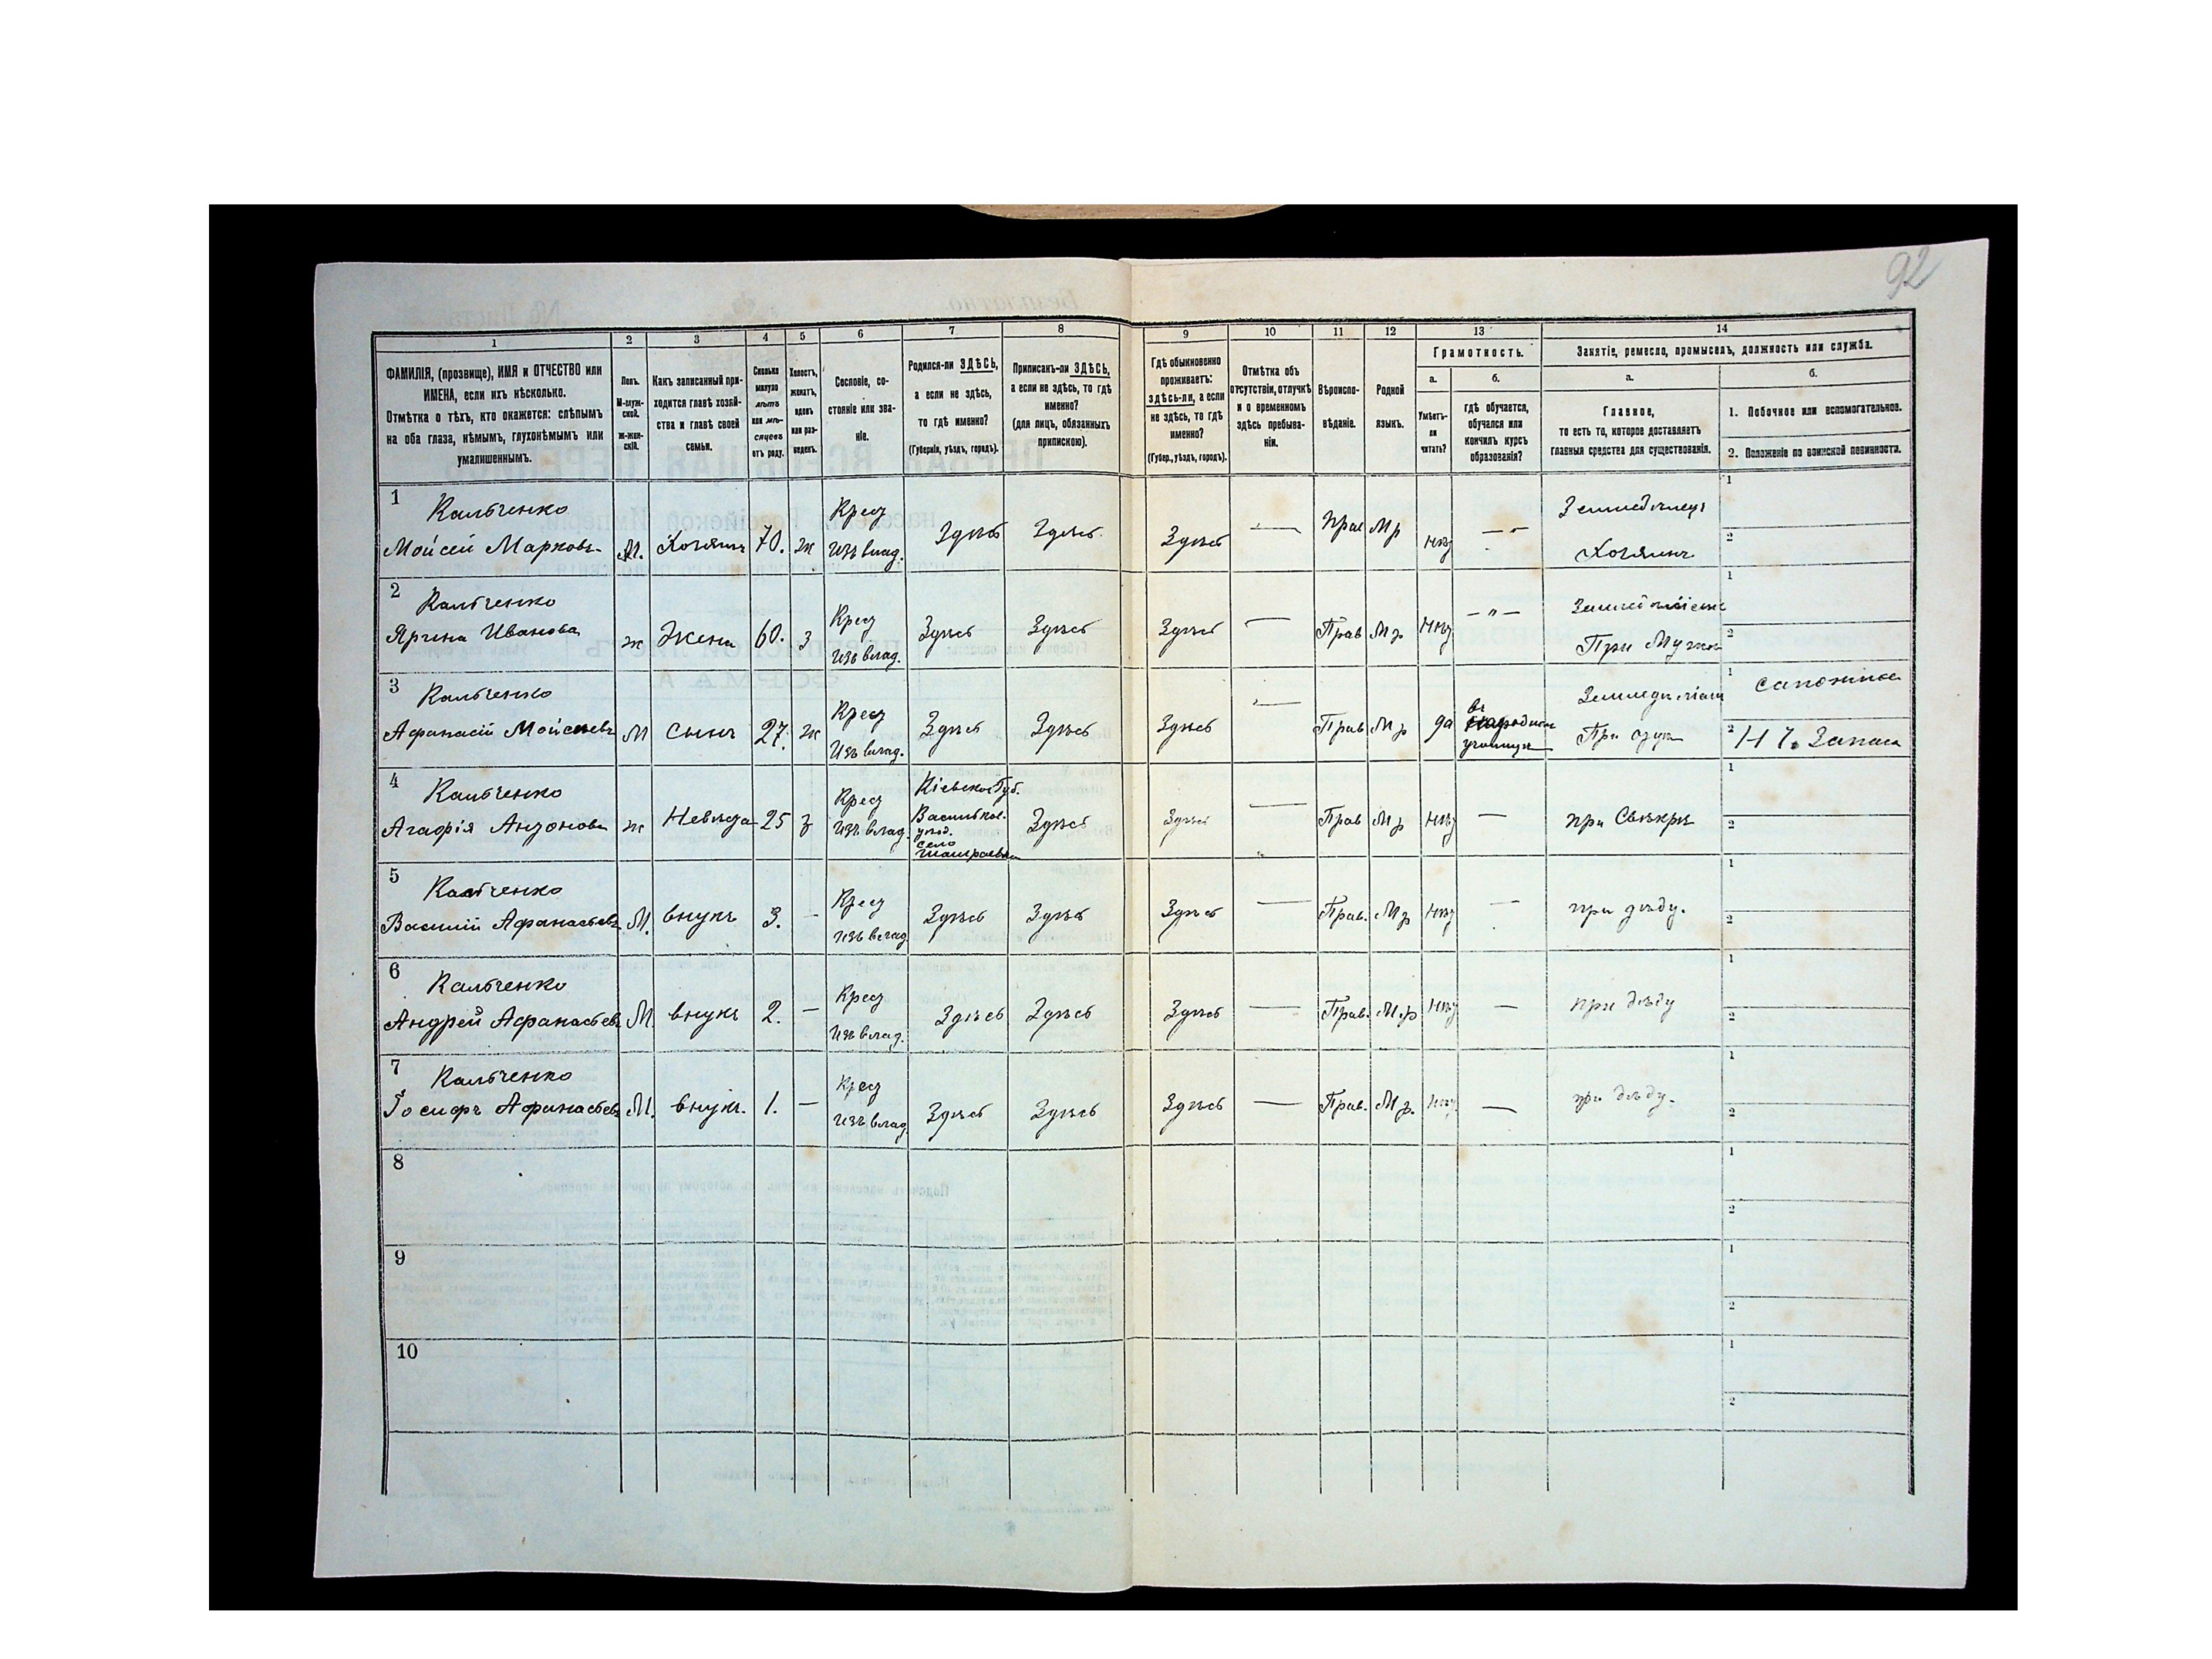 92
1 2 3 4 5 6 7 8 9 10 11 12 13 14
ФАМИЛІЯ, (прозвище), ИМЯ и ОТЧЕСТВО или
ИМЕНА, если ихъ нѣсколько.
Отмѣтка о тѣхъ, кто окажется: слѣпымъ
на оба глаза, нѣмымъ, глухонѣмымъ или
умалишеннымъ.
Полъ.
М-муж-
ской.
Ж-жен-
скій.
Какъ записанный при-
ходится главѣ хозяй-
ства и главѣ своей
семьи.
Сколько
минуло
лѣтъ
или мѣ-
сяцевъ
отъ роду.
Холостъ,
женатъ,
вдовъ
или раз-
веденъ.
Сословіе, со-
стояніе или зва-
ніе.
Родился-ли ЗДѢСЬ,
а если не здѣсь,
то гдѣ именно?
(Губернія, уѣздъ, городъ).
Приписанъ-ли ЗДѢСЬ,
а если не здѣсь, то гдѣ
именно?
(для лицъ, обязанныхъ
припискою).
Гдѣ обыкновенно
проживаетъ:
здѣсь-ли, а если
не здѣсь, то гдѣ
именно?
(Губер., уѣздъ, городъ).
Отмѣтка объ
отсутствіи, отлучкѣ
и о временномъ
здѣсь пребыва-
ніи.
Вѣроиспо-
вѣданіе.
Родной
языкъ.
Грамотность.
а. б.
Умѣетъ-
ли
читать?
гдѣ обучается,
обучался или
кончилъ курсъ
образованія?
Занятіе, ремесло, промыселъ, должность или служба.
а. б.
Главное,
то есть то, которое доставляетъ
главныя средства для существованія.
1. Побочное или вспомогательное.
2. Положеніе по воинской повинности.
1 Кальченко Крес Землед 1
Мойсей Марковъ М. Хозяинъ 70. ж Изъ влад. Здѣсь Здѣсь Здѣсь — Прав Мр нѣт — Хозяинъ 2
2 Кальченко Крес 1
Ярина Иванова ж Жена 60. з Изъ влад. Здѣсь Здѣсь Здѣсь — Прав Мр Нѣт — " — При Муже 2
3 Кальченко Крес 1
Афанасій Мойсеевъ М Сынъ 27. ж Изъ влад. Здѣсь Здѣсь Здѣсь — Прав Мр да въ училищѣ При 2 Запаса
4 Кальченко Крес Кіевской Губ. Васильков. уѣзд. село 1
Агафія Антонова ж Невѣста 25 з Изъ влад. Здѣсь Здѣсь — Прав Мр Нѣт — при Свекрѣ 2
5 Кальченко Крес 1
Василій Афанасьевъ М. внукъ 3. — Изъ влад Здѣсь Здѣсь Здѣсь — Прав. Мр Нѣт — при дѣду. 2
6 Кальченко Крес 1
Андрей Афанасьевъ М внукъ 2. — Изъ влад. Здѣсь Здѣсь Здѣсь — Прав. Мр Нѣт — при дѣду 2
7 Кальченко Крес 1
Іосифъ Афанасьевъ М. внукъ. 1. — Изъ влад. Здѣсь Здѣсь Здѣсь — Прав. Мр. Нѣт — при дѣду. 2
8 1
2
9 1
2
10 1
2